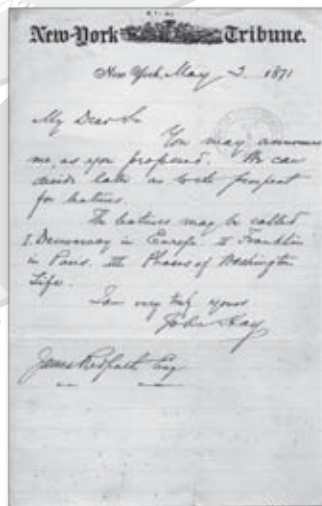 New-York Tribune.
New York, May 3 1871
My Dear Sir
You may announce
me, as you proposed. We can
decide later as to the
for lectures.
The lectures may be called
I. Democracy in Europe. II Franklin
in Paris. III Phases of Washington
Life.
I am very truly yours
John Hay
James Redpath Esq